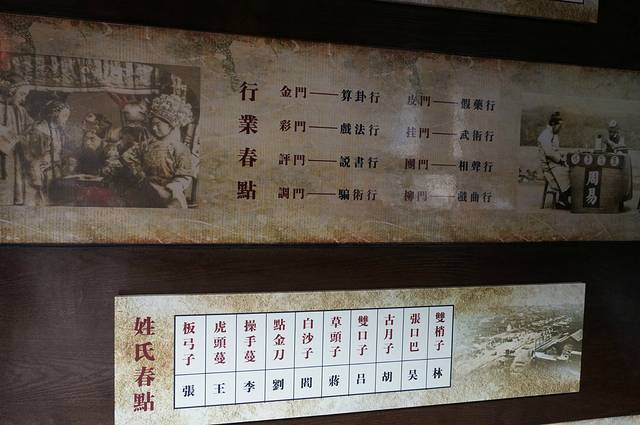 行業春點
金門——算卦行
彩門——戲法行
評門——説書行
調門——騙術行
皮門——假藥行
挂門——武術行
團門——相聲行
柳門——戲曲行
周易
姓氏春點
板弓子 張
虎頭蔓 王
操手蔓 李
點金刀 劉
白沙子 閻
草頭子 蔣
雙口子 吕
古月子 胡
張口巴 吴
雙梢子 林